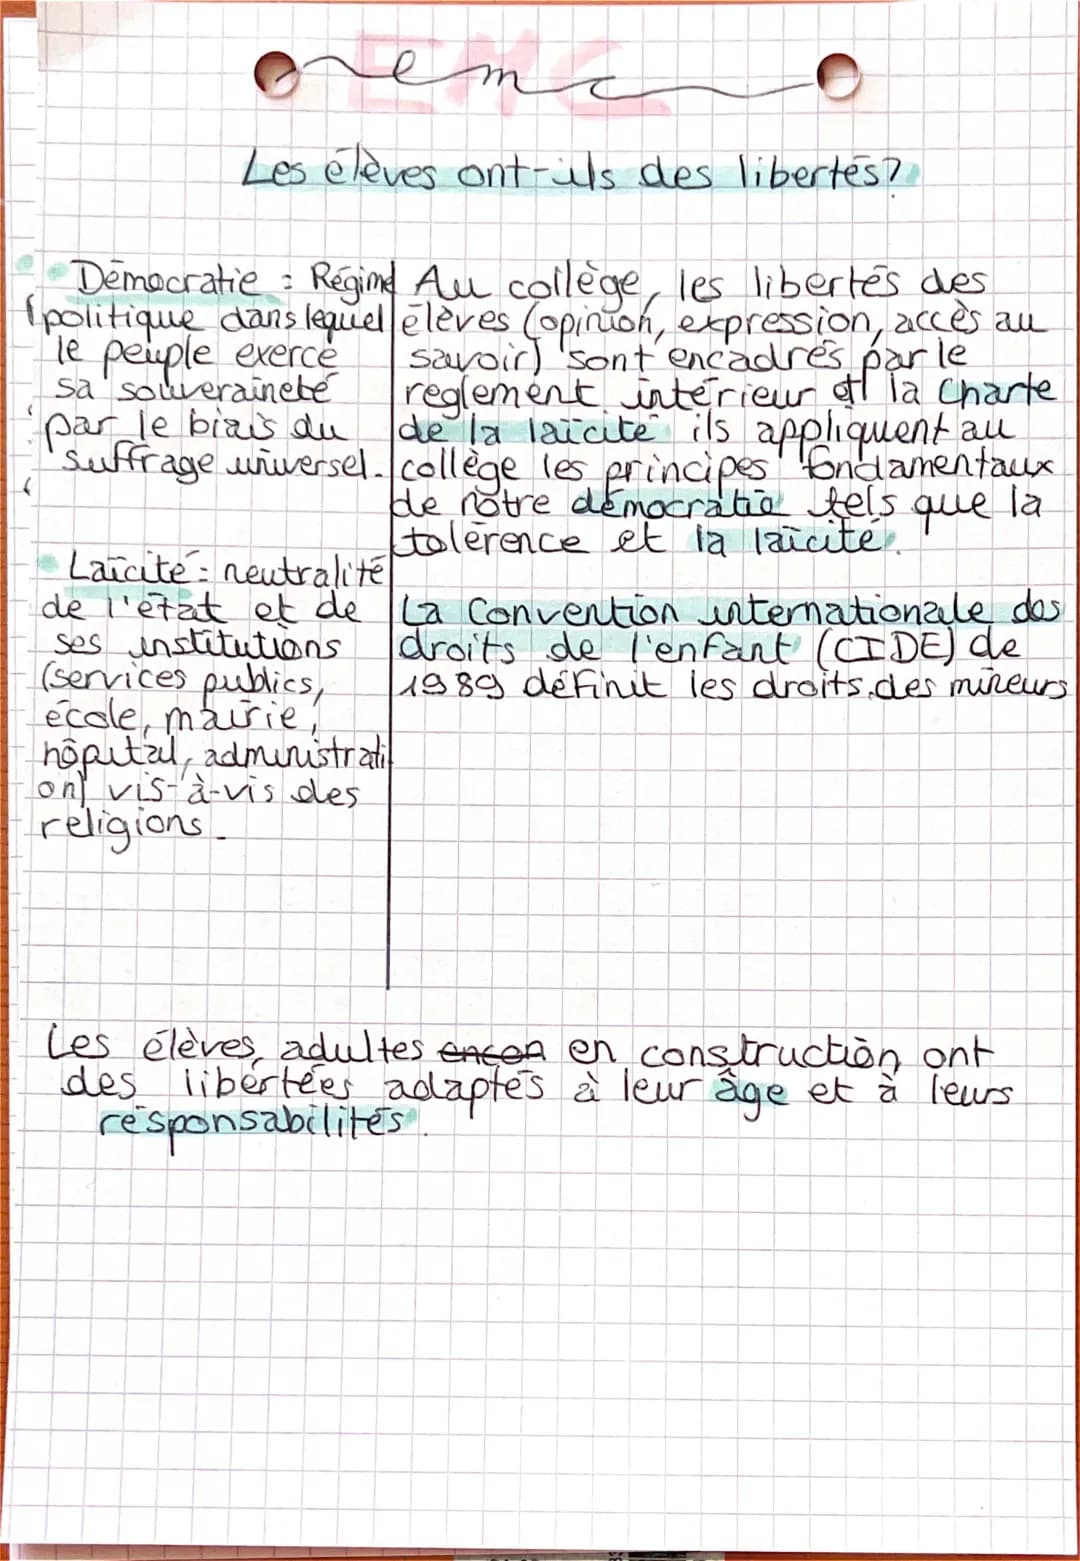 EMC
emc
Les élèves ont-ils des libertés?
Démocratie : Régime
politique dans lequel
le peuple exerce
sa souveraineté
par le biais du
suffrage universel.
Laïcité : neutralité
de l'état et de
ses institutions
(services publics,
école, mairie,
hôpital, administrati
on) vis-à-vis des
religions.
Au collège, les libertés des
élèves (opinion, expression, accès au
savoir) sont encadrés par le
reglement intérieur et la Charte
de la laïcité ils appliquent au
collège les principes fondamentaux
de notre démocratie tels que la
tolérence et la laïcité.
La Convention internationale des
droits de l'enfant (CIDE) de
1989 définit les droits des mineurs
Les élèves, adultes encon en construction, ont
des libertées adaptés à leur âge et à leurs
responsabilités.